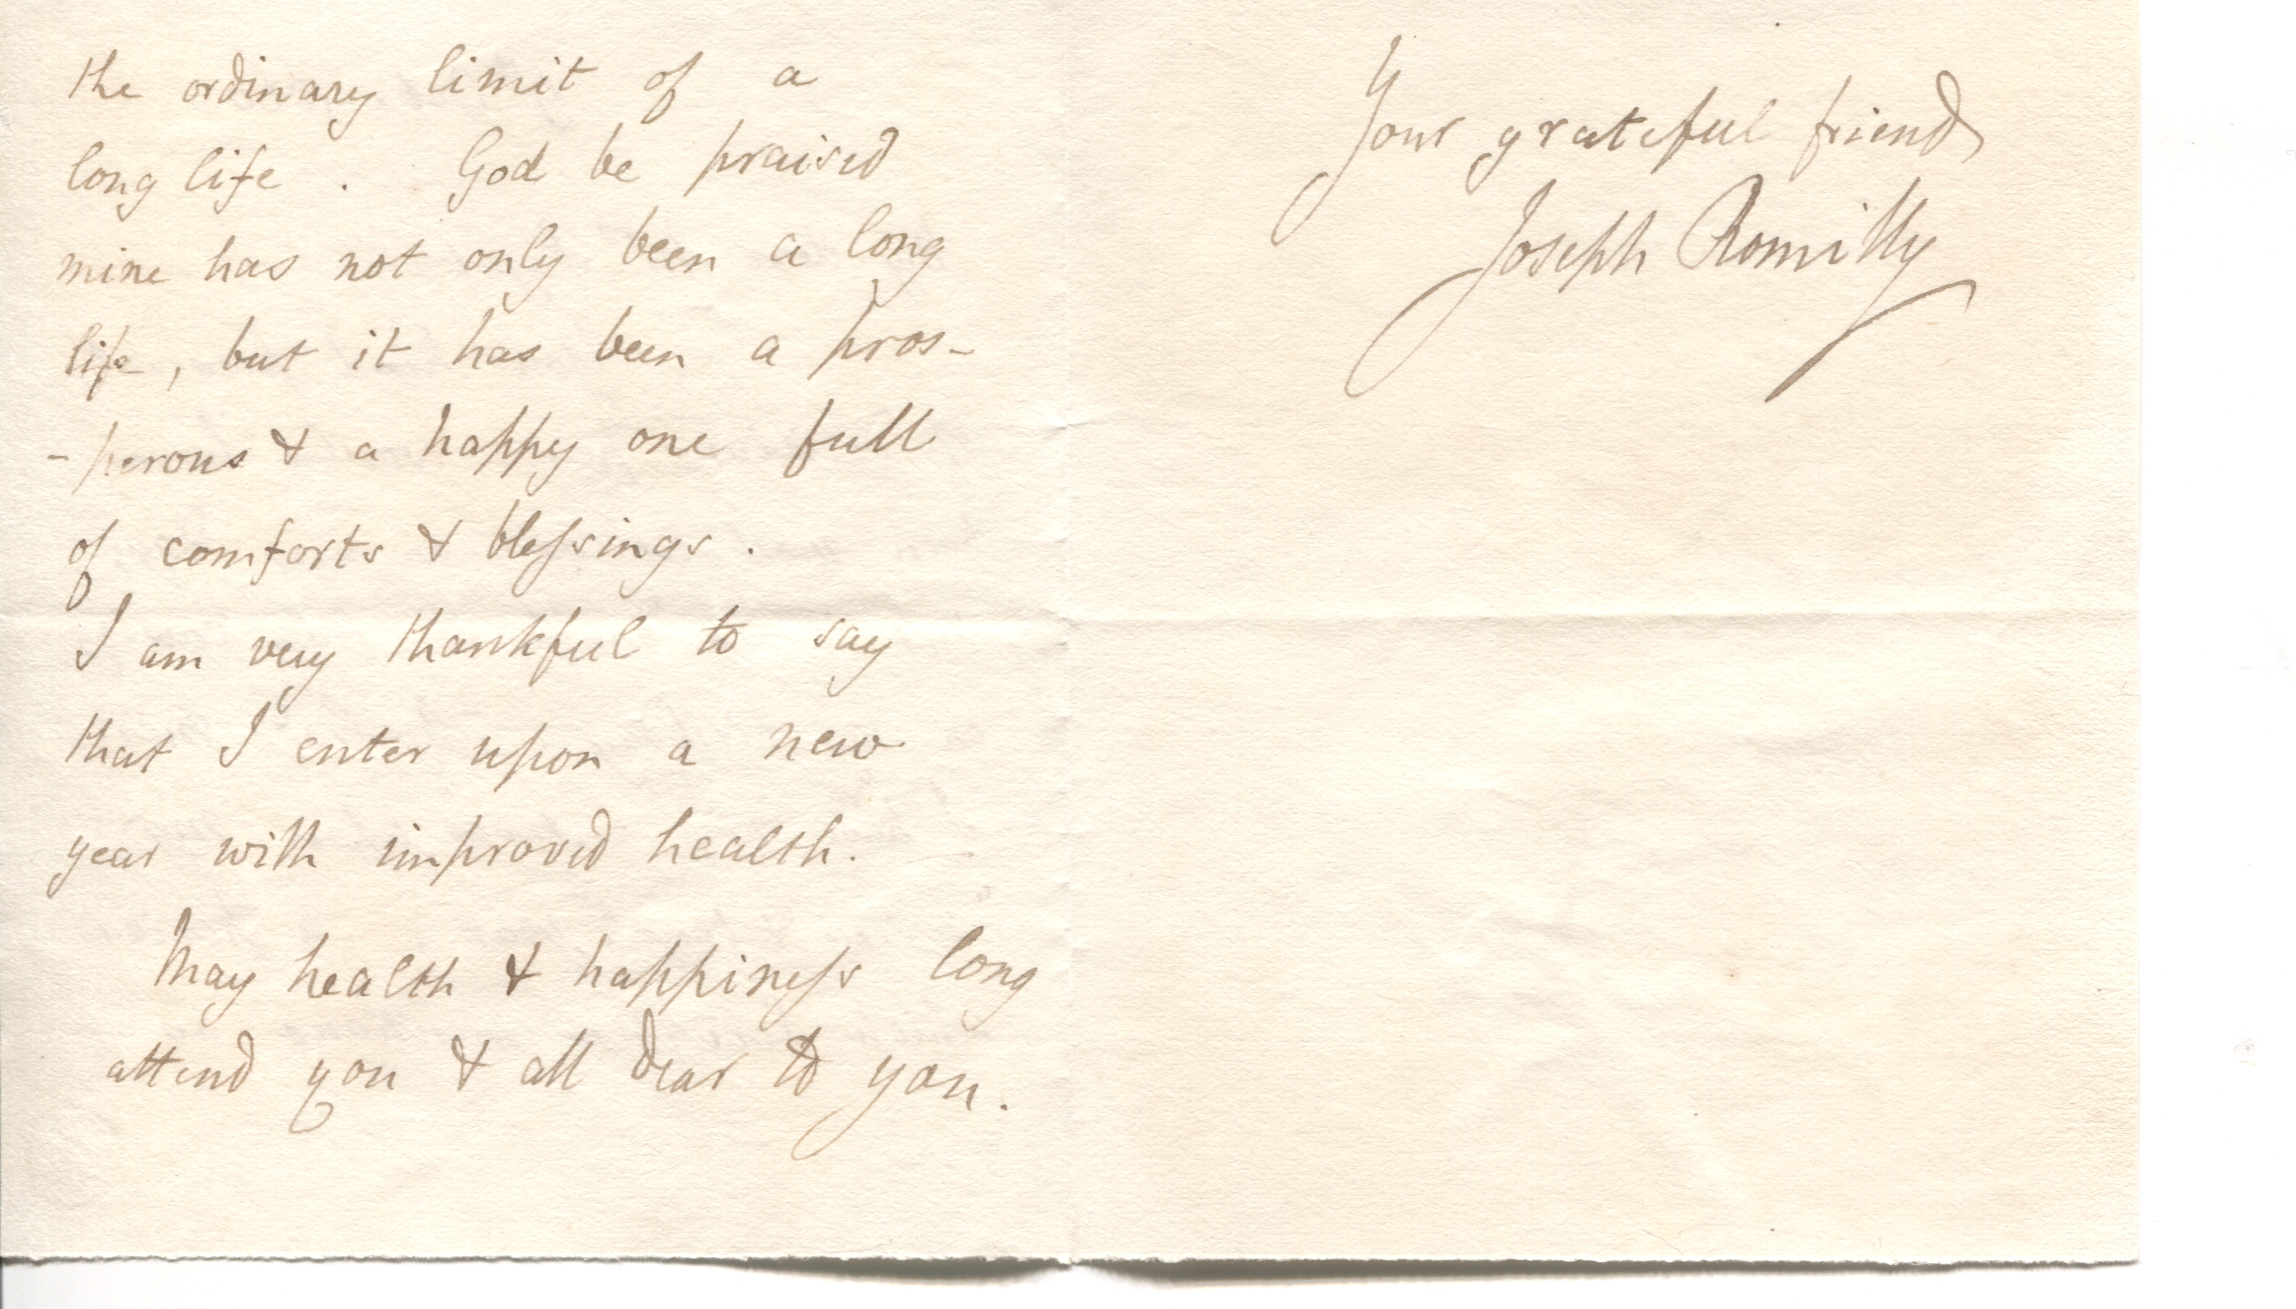 the ordinary limit of a
long life. God be praised
mine has not only been a long
life, but it has been a pros-
-perous & a happy one full
of comforts & blessings.
I am very thankful to say
that I enter upon a new
year with improved health.
May health & happiness long
attend you & all dear to you.
Your grateful friend
Joseph Romilly